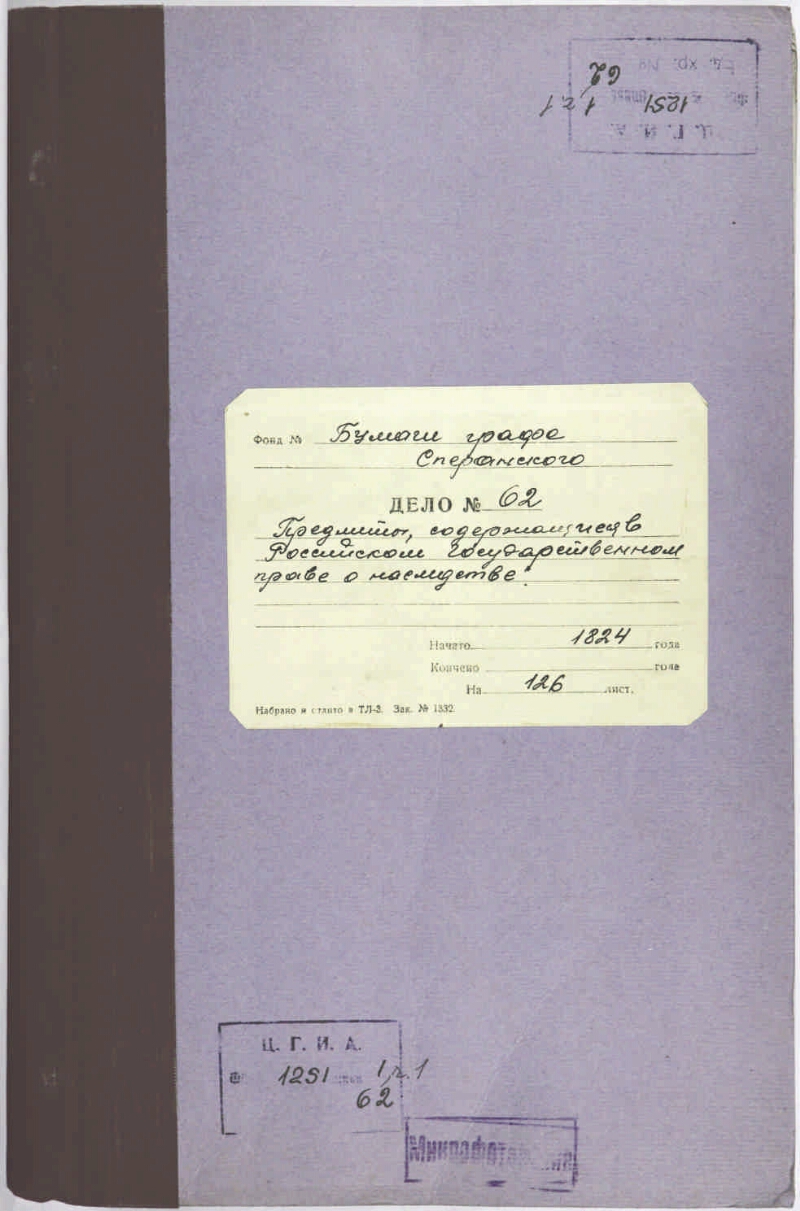 Ц. Г. И. А.
1251 1 г.1
Ед. хр. №
62
Фонд № Бумаги графа
Сперанского
ДЕЛО № 62
Предметы, содержащиеся в
Российском государственном
праве о наследстве.
Начато 1824 года
Кончено года
На 126 лист.
Набрано и в ТЛ-3. Зак. № 1332.
Ц. Г. И. А.
Ф 1251 1 г.1
62